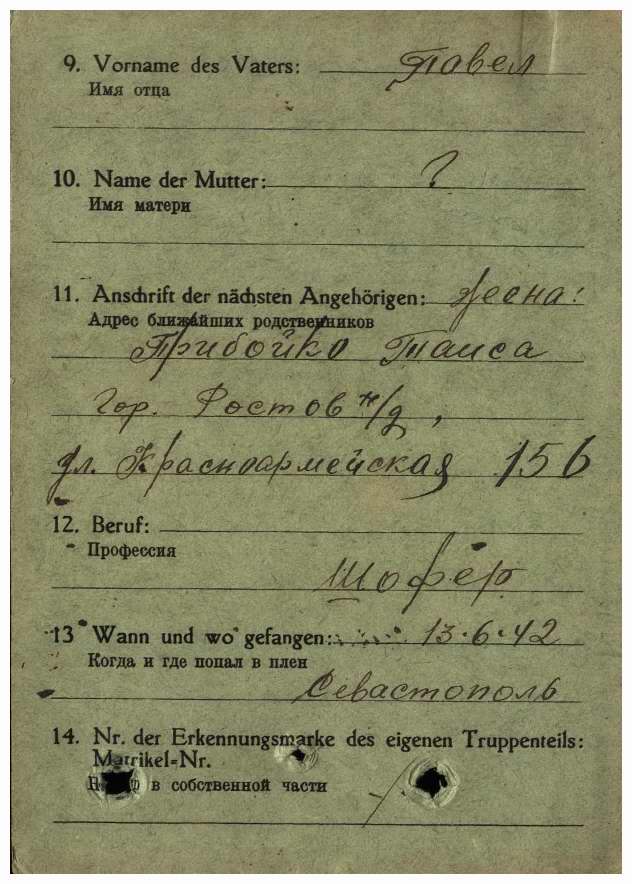 9. Vorname des Vaters: Павел
Имя отца
10. Name der Mutter: ?
Имя матери
11. Anschrift der nächsten Angehörigen: жена:
Адрес ближайших родственников
Грибойко Таиса
гор. Ростов н/д,
ул. Красноармейская 156
12. Beruf:
Профессия
Шофёр
13 Wann und wo gefangen: 13.6.42
Когда и где попал в плен
Севастополь
14. Nr. der Erkennungsmarke des eigenen Truppenteils:
Matrikel=Nr.
в собственной части